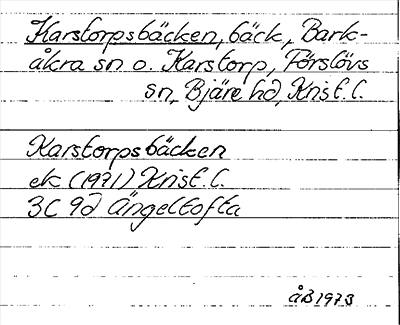 Karstorpsbäcken, bäck, Bark-
åkra sn o. Karstorp, Förslövs
sn, Bjäre hd, Krist. l.
Karstorpsbäcken
ek (1971) Krist. l.
3C 9d Ängeltofta
åB 1973